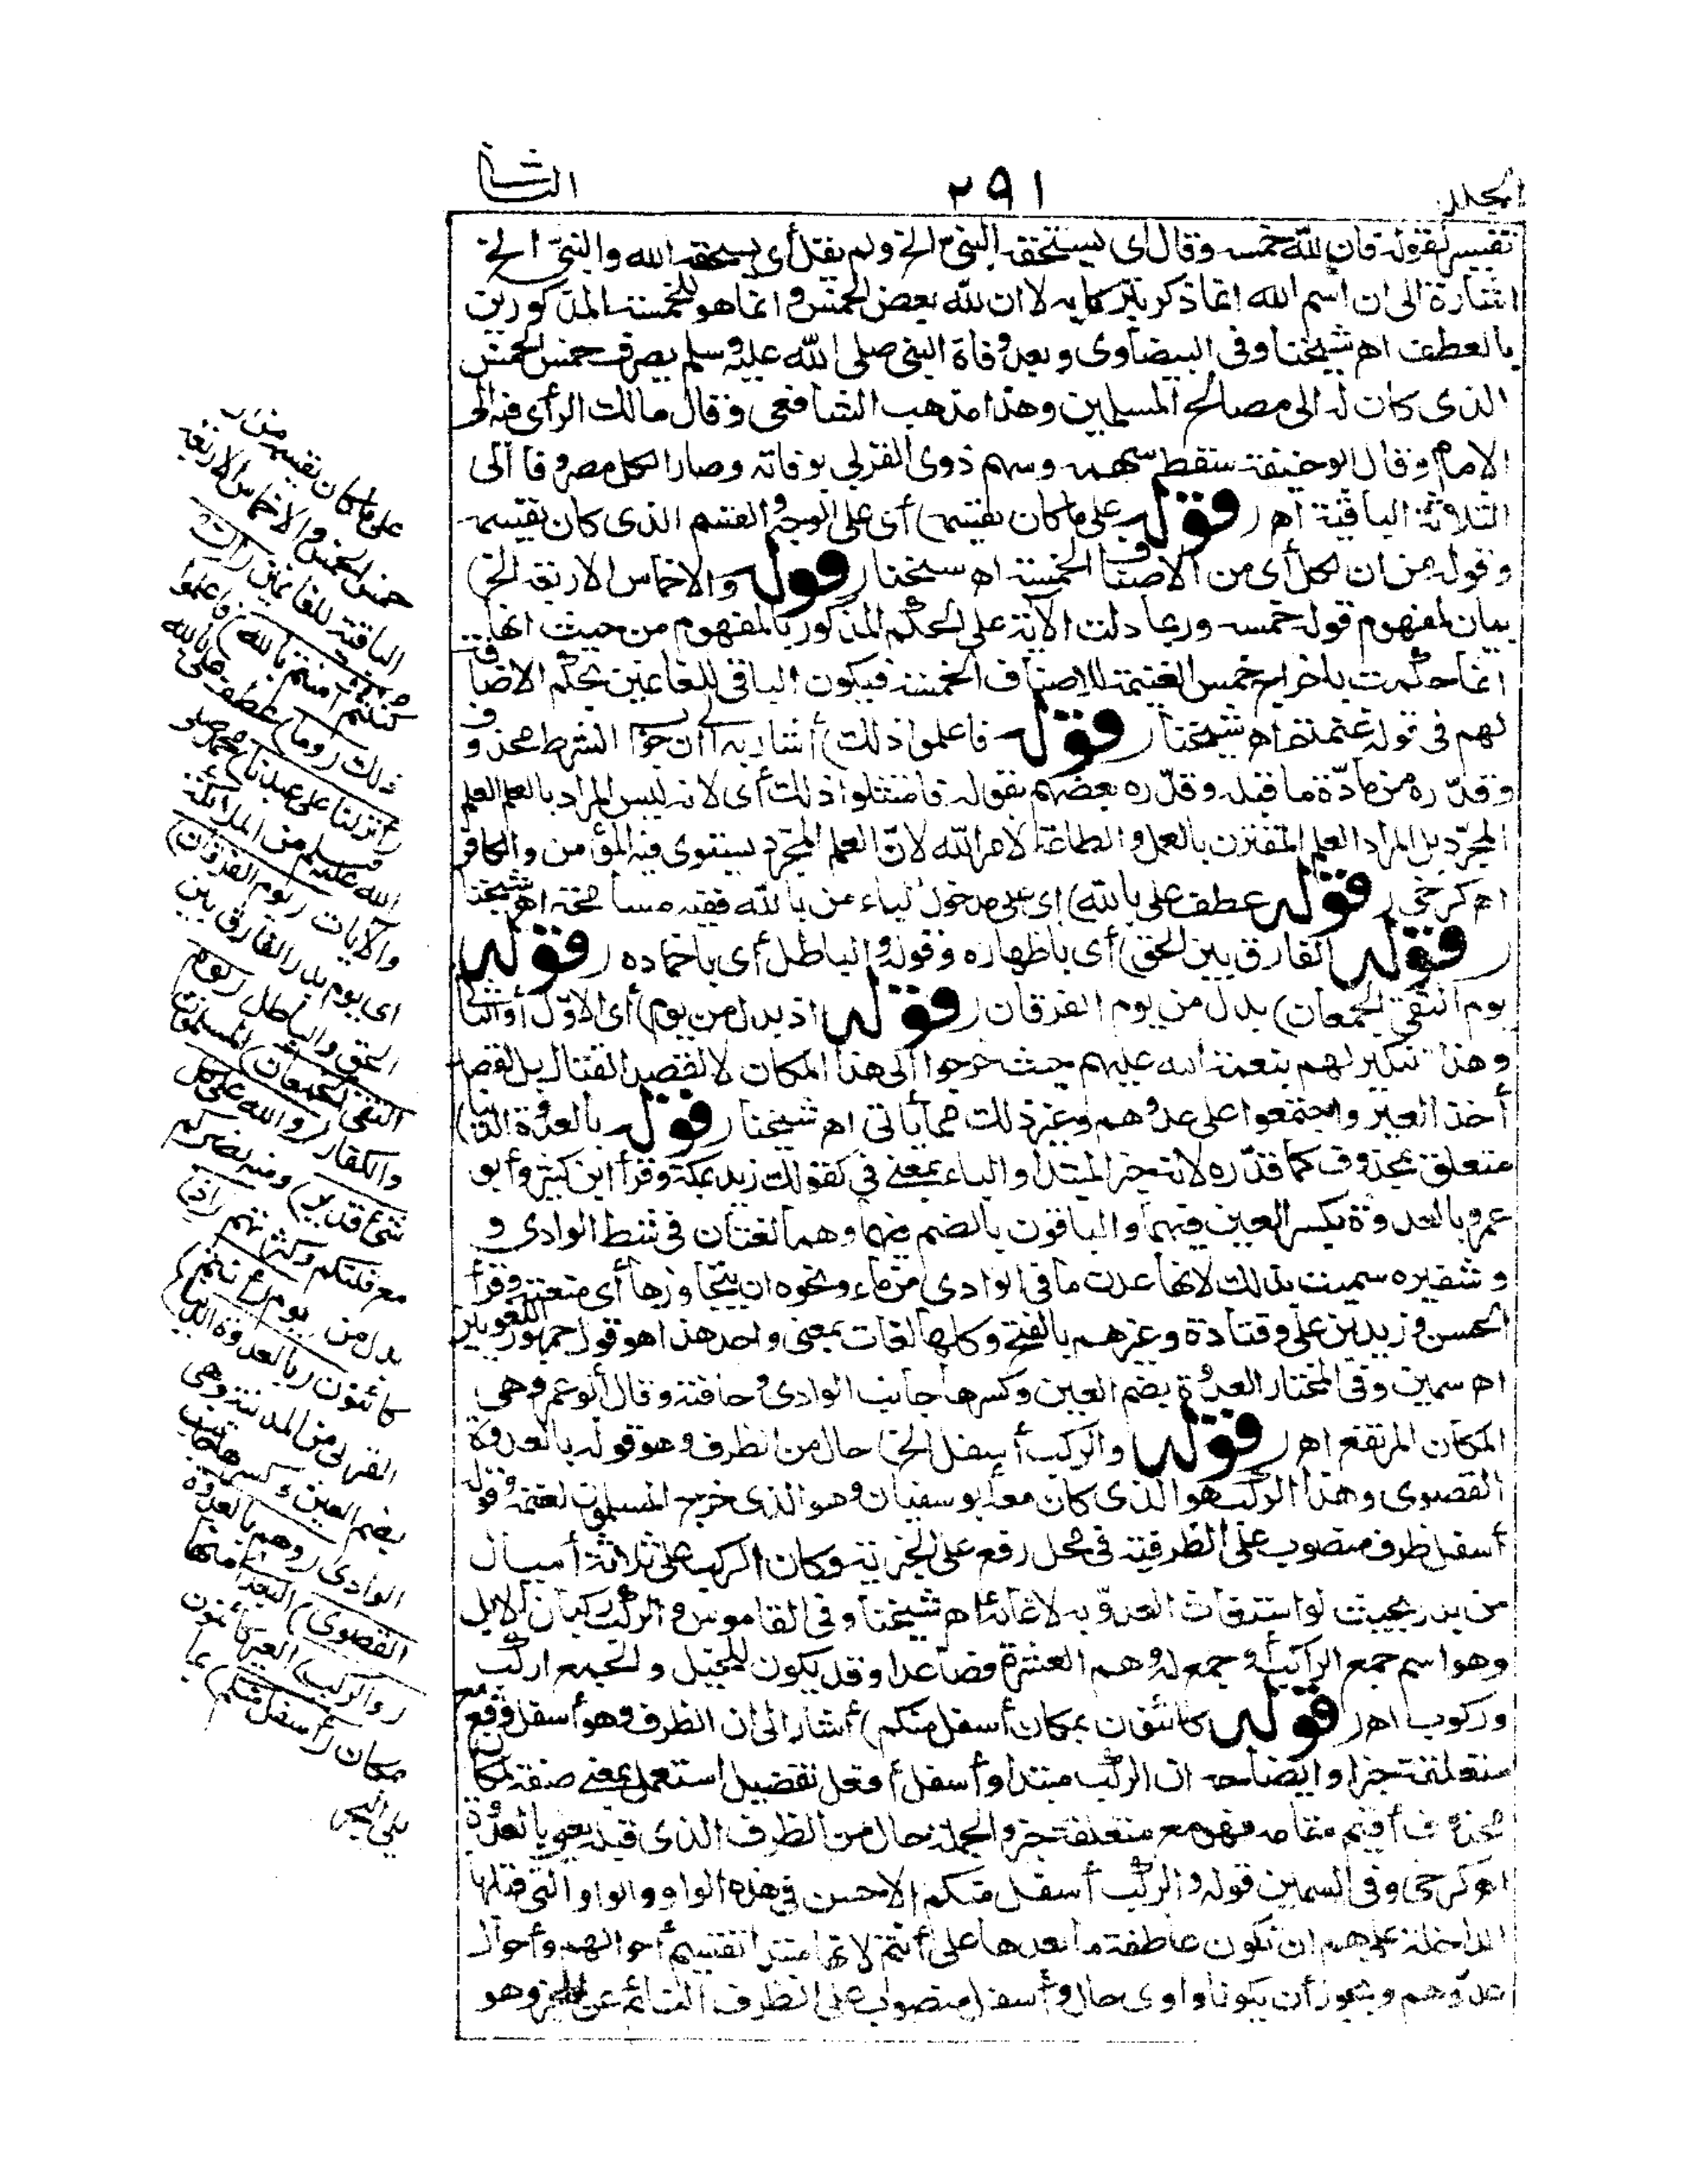 المجلد
٢٩١
الثانى
تفسير لقوله فان لله خمسه وقال أى يستحقه النبى الخ ولم يقل أى يستحقه الله والنبى الخ
اشارة الى ان اسم الله انما ذكر تبركا به لا ان لله بعض الخمس وانما هو للخمسة المذكورين
بالعطف اهـ شيخنا وفى البيضاوى وبعد وفاة النبى صلى الله عليه وسلم يصرف خمس الخمس
الذى كان له الى مصالح المسلمين وهذا مذهب الشافعى وقال مالك الرأى فيه الى
الامام وقال ابو حنيفة سقط سهمه وسهم ذوى القربى بوفاته وصار الكل مصروفا الى
الثلاثة الباقية اهـ (قوله على ما كان يقسمه) أى على الوجه والقسم الذى كان يقسمه
وقوله من ان لكل أى من الاصناف الخمسة اهـ شيخنا (قوله والاخماس الاربعة الخ)
بيان لمفهوم قوله خمسه وربما دلت الآية على الحكم المذكور بالمفهوم من حيث انها
انما حكمت باخراج خمس الغنيمة للاصناف الخمسة فيكون الباقى للغانمين بحكم الاضافة
لهم فى قوله غنمتم اهـ شيخنا (قوله فاعلموا ذلك) أشار به الى أن جواب الشرط محذوف
وقدره من مادة ما قبله وقدره بعضهم بقوله فامتثلوا ذلك أى لانه ليس المراد بالعلم العلم
المجرد بل المراد العلم المقترن بالعمل والطاعة لامر الله لان العلم المجرد يستوى فيه المؤمن والكافر
اهـ كرخى (قوله عطف على بالله) أى على مدخول الباء من بالله ففيه مسامحة اهـ شيخنا
(قوله الفارق بين الحق) أى باظهاره وقوله والباطل أى باخماده (قوله
يوم التقى الجمعان) بدل من يوم الفرقان (قوله اذ بدل من يوم) أى الاول أو الثانى
وهذا تذكير لهم بنعمة الله عليهم حيث خرجوا الى هذا المكان لا لقصد القتال بل لقصد
أخذ العير واجتمعوا على عدوهم وغير ذلك مما يأتى اهـ شيخنا (قوله بالعدوة الدنيا)
متعلق بمحذوف كما قدره لانه خبر المبتدا والباء بمعنى فى كقولك زيد بمكة وقرأ ابن كثير وأبو
عمرو بالعدوة بكسر العين فيهما والباقون بالضم فيهما وهما لغتان فى شط الوادى و
وشفيره سميت بذلك لانها عدت ما فى الوادى من ماء ونحوه ان يتجاوزها أى منعته وقرأ
الحسن وزيد بن على وقتادة وغيرهم بالفتح وكلها لغات بمعنى واحد هذا هو قول جمهور اللغويين
اهـ سمين وفى المختار العدوة بضم العين وكسرها جانب الوادى وحافته وقال أبو عمرو هى
المكان المرتفع اهـ (قوله والركب أسفل الخ) حال من الظرف وهو قوله بالعدوة
القصوى وهذا الركب هو الذى كان معه أبو سفيان وهو الذى خرج المسلمون لغنمه وقوله
أسفل ظرف منصوب على الظرفية فى محل رفع على الخبرية وكان الركب على ثلاثة أميال
من بدر بحيث لو استغاث العدو به لاغاثه اهـ شيخنا وفى القاموس والركب ركبان الابل
وهو اسم جمع الراكب أو جمع له وهم العشرة فصاعدا وقد يكون للخيل والجمع أركب
وركوب اهـ (قوله كائنون بمكان أسفل منكم) أشار الى ان الظرف وهو أسفل وقع مع
متعلقه خبرا وايضاحه ان الركب مبتدأ وأسفل أفعل تفضيل استعمل بمعنى صفة لمكان
محذوف أقيم مقامه فهو مع متعلقه خبر والجملة حال من الظرف الذى قبله يعنى بالعدوة
اهـ كرخى وفى السمين قوله والركب أسفل منكم الاحسن فى هذه الواو والواو التى قبلها
الداخلة على هم ان تكون عاطفة ما بعدها على أنتم لانها مبتدأ تقسيم أحوالهم وأحوال
عدوهم ويجوز أن يكونا واوى حال وأسفل منصوب على الظرف النائب عن الخبر وهو
على ما كان يقسمه من ان
خمس الخمس والاخماس الاربعة
الباقية للغانمين (ان
كنتم آمنتم بالله) فاعلموا
ذلك (وما) عطف على بالله
(أنزلنا على عبدنا) محمد صلى
الله عليه وسلم من الملائكة
والآيات (يوم الفرقان)
اى يوم بدر الفارق بين
الحق والباطل (يوم
التقى الجمعان) المسلمون
والكفار (والله على كل
شئ قدير) ومنه نصركم
مع قلتكم وكثرتهم (اذ)
بدل من يوم (أنتم)
كائنون (بالعدوة الدنيا)
القربى من المدينة وهى
بضم العين وكسرها جانب
الوادى (وهم بالعدوة
القصوى) البعدى منها
(والركب) العير كائنون
بمكان (أسفل منكم) مما
يلى البحر